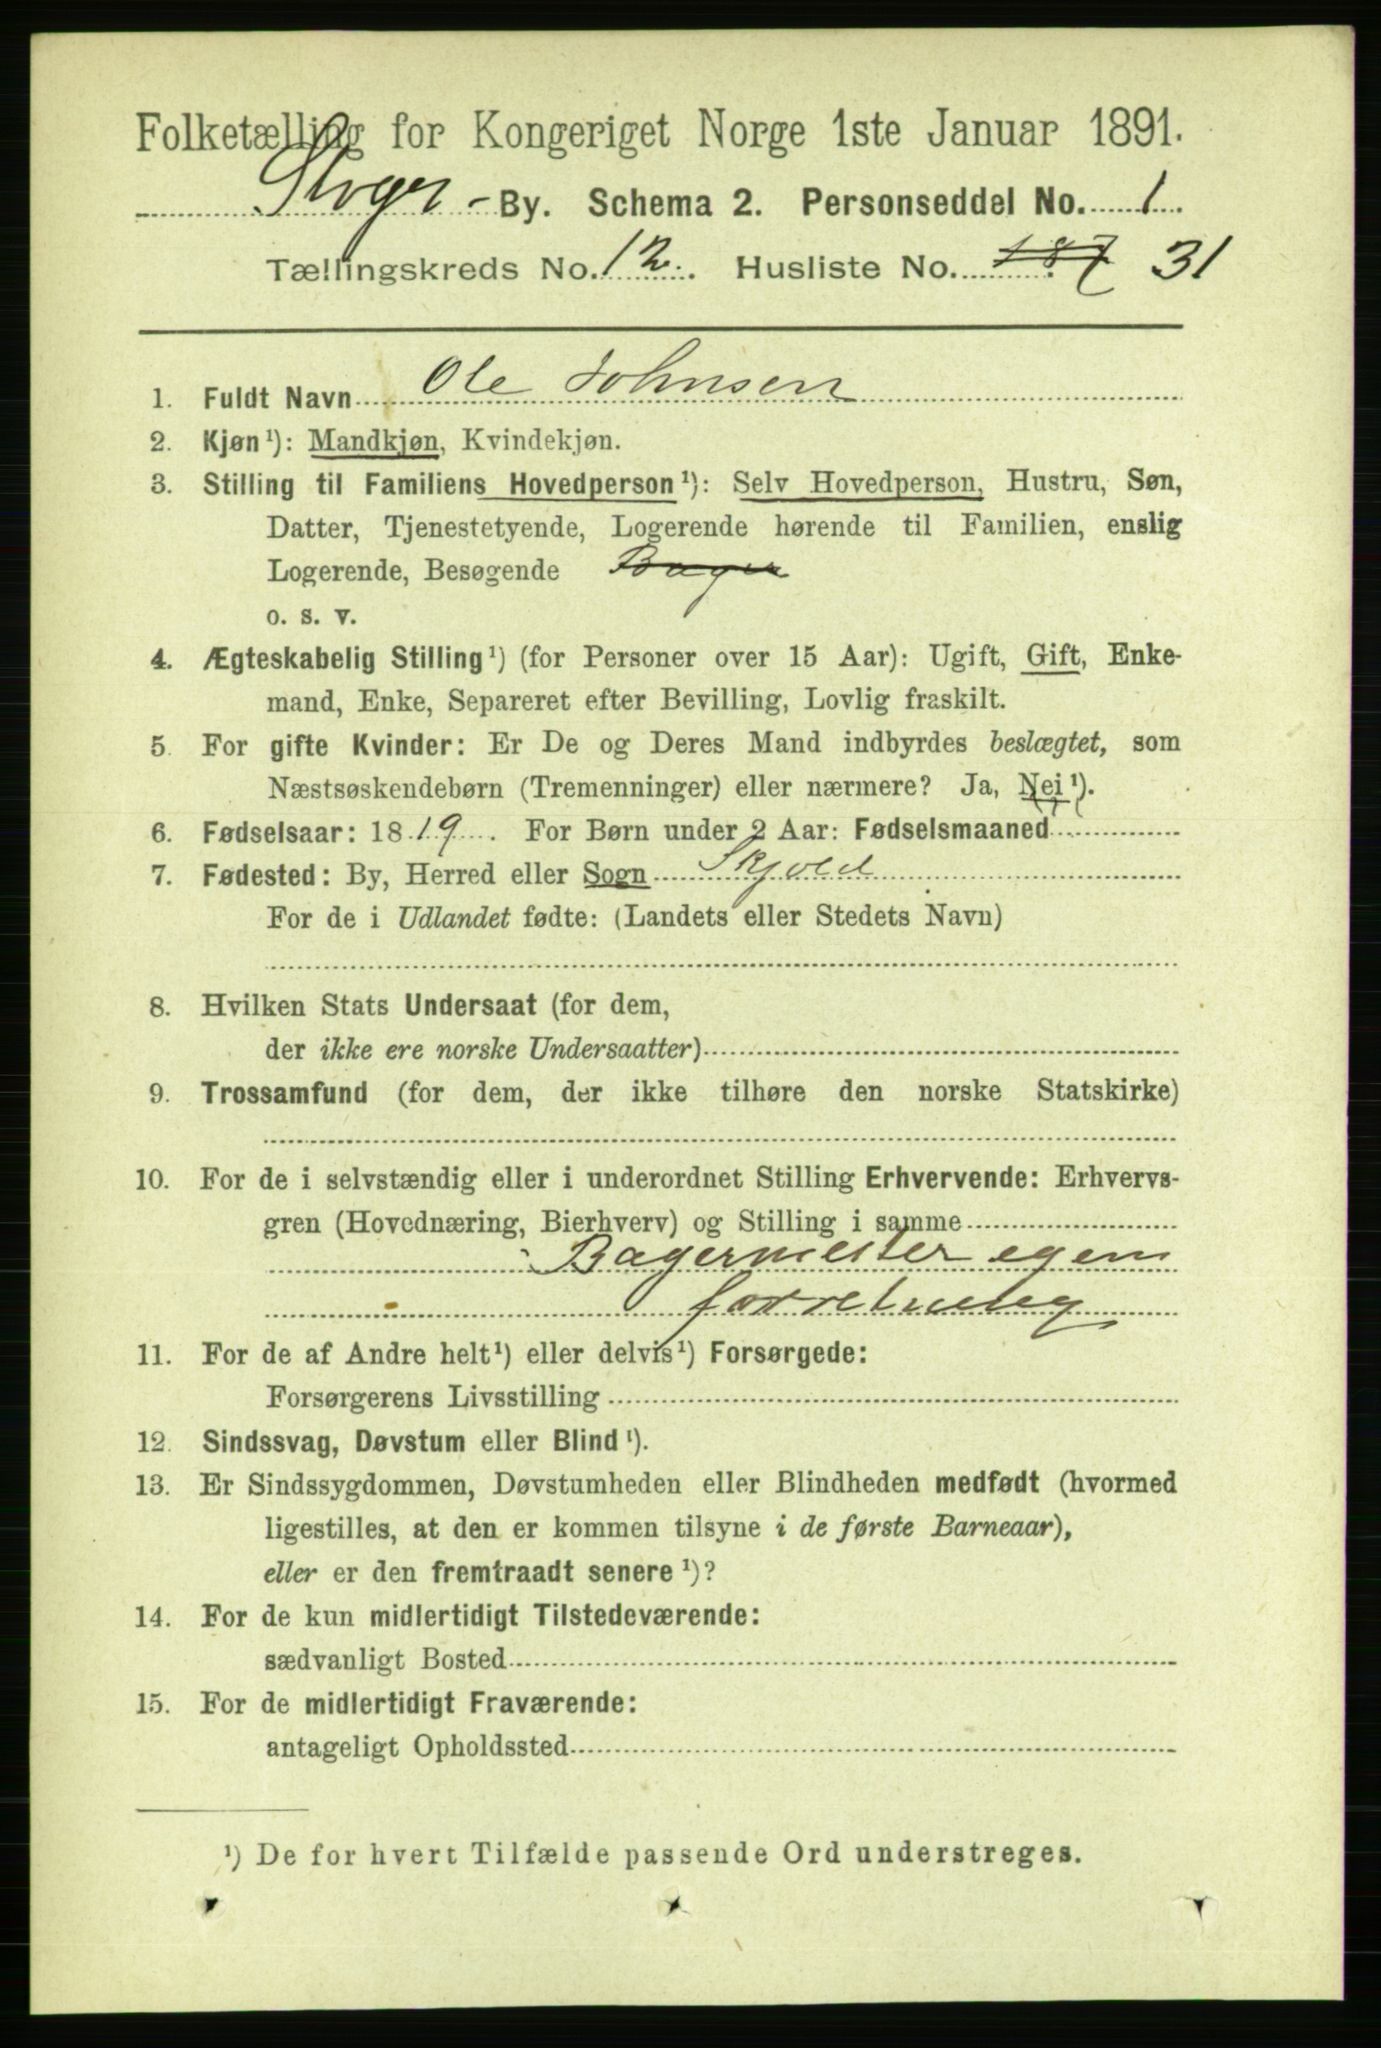 Folketælling for Kongeriget Norge 1ste Januar 1891.
Stvger - By. Schema 2. Personseddel No. 1
Tællingskreds No. 12. Husliste No. 187 31
1. Fuldt Navn Ole Johnsen
2. Kjøn¹): Mandkjøn, Kvindekjøn.
3. Stilling til Familiens Hovedperson¹): Selv Hovedperson, Hustru, Søn,
Datter, Tjenestetyende, Logerende hørende til Familien, enslig
Logerende, Besøgende Bager
o. s. v.
4. Ægteskabelig Stilling¹) (for Personer over 15 Aar): Ugift, Gift, Enke-
mand, Enke, Separeret efter Bevilling, Lovlig fraskilt.
5. For gifte Kvinder: Er De og Deres Mand indbyrdes beslægtet, som
Næstsøskendebørn (Tremenninger) eller nærmere? Ja, Nei¹).
6. Fødselsaar: 1819. For Børn under 2 Aar: Fødselsmaaned
7. Fødested: By, Herred eller Sogn Skjold
For de i Udlandet fødte: (Landets eller Stedets Navn)
8. Hvilken Stats Undersaat (for dem,
der ikke ere norske Undersaatter)
9. Trossamfund (for dem, der ikke tilhøre den norske Statskirke)
10. For de i selvstændig eller i underordnet Stilling Erhvervende: Erhvervs-
gren (Hovednæring, Bierhverv) og Stilling i samme
Bagermester egen
forretning
11. For de af Andre helt¹) eller delvis¹) Forsørgede:
Forsørgerens Livsstilling
12. Sindssvag, Døvstum eller Blind¹).
13. Er Sindssygdommen, Døvstumheden eller Blindheden medfødt (hvormed
ligestilles, at den er kommen tilsyne i de første Barneaar),
eller er den fremtraadt senere¹)?
14. For de kun midlertidigt Tilstedeværende:
sædvanligt Bosted
15. For de midlertidigt Fraværende:
antageligt Opholdssted
¹) De for hvert Tilfælde passende Ord understreges.